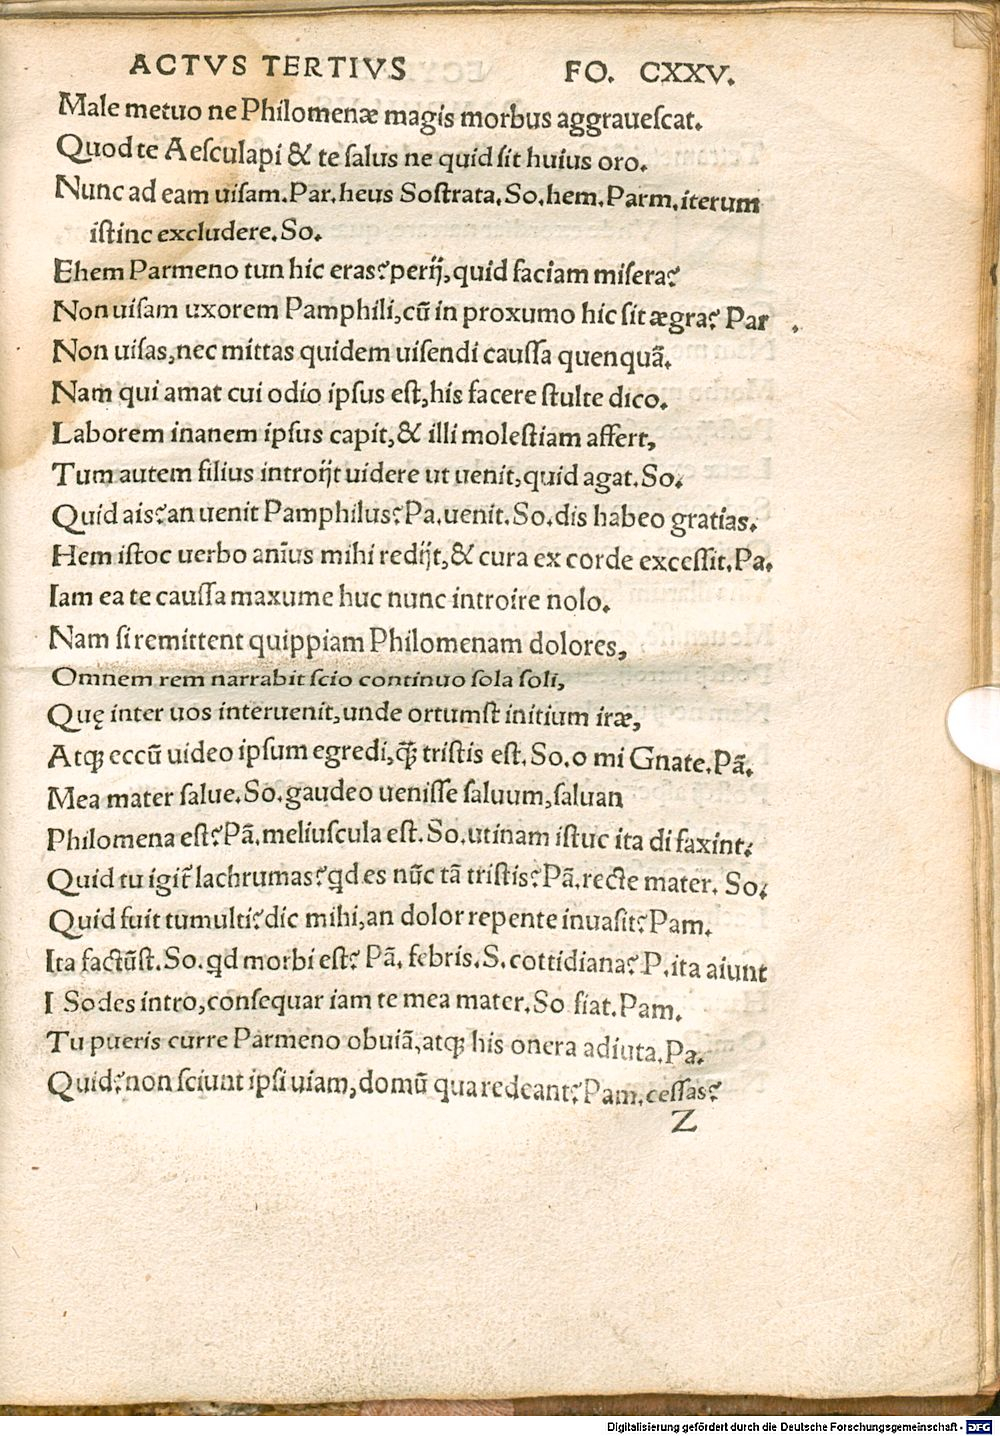 ACTVS TERTIVS FO. CXXV.
Male metuo ne Philomenæ magis morbus aggrauescat.
Quod te Aesculapi & te salus ne quid sit huius oro.
Nunc ad eam uisam. Par. heus Sostrata. So. hem. Parm. iterum
istinc excludere. So.
Ehem Parmeno tun hic eras? perij, quid faciam misera?
Non uisam uxorem Pamphili, cū in proxumo hic sit ægra? Par.
Non uisas, nec mittas quidem uisendi caussa quenquā.
Nam qui amat cui odio ipsus est, his facere stulte dico.
Laborem inanem ipsus capit, & illi molestiam affert,
Tum autem filius introijt uidere ut uenit, quid agat. So.
Quid ais? an uenit Pamphilus? Pa. uenit. So. dis habeo gratias.
Hem istoc uerbo anīus mihi redijt, & cura ex corde excessit. Pa.
Iam ea te caussa maxume huc nunc introire nolo.
Nam si remittent quippiam Philomenam dolores,
Omnem rem narrabit scio continuo sola soli,
Quę inter uos interuenit, unde ortumst initium iræ,
Atqꝫ eccū uideo ipsum egredi, ꝙ̃ tristis est. So. o mi Gnate. Pā.
Mea mater salue. So. gaudeo uenisse saluum, saluan
Philomena est? Pā. meliuscula est. So. utinam istuc ita di faxint.
Quid tu igit̃ lachrumas? qd es nūc tā tristis? Pā. recte mater. So.
Quid fuit tumulti? dic mihi, an dolor repente inuasit? Pam.
Ita factūst. So. qd morbi est? Pā. febris. S. cottidiana? P. ita aiunt
I Sodes intro, consequar iam te mea mater. So fiat. Pam.
Tu pueris curre Parmeno obuiā, atqꝫ his onera adiuta. Pa.
Quid? non sciunt ipsi uiam, domū qua redeant? Pam. cessas?
Z
Digitalisierung gefördert durch die Deutsche Forschungsgemeinschaft - DFG